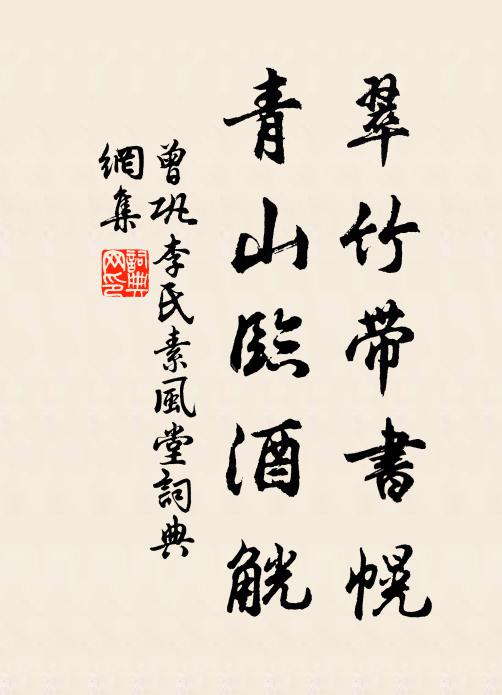 翠竹帶書幌
青山臨酒觥
曾鞏李氏素風堂詞典
網集
詞典网印